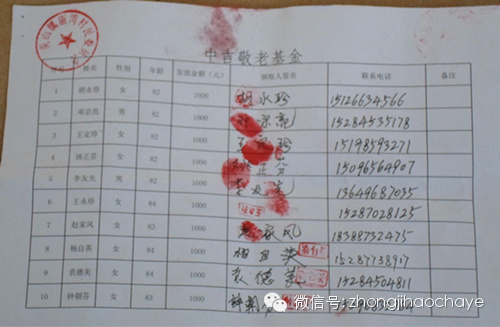 中吉敬老基金
序号 姓名 性别 年龄 发放金额（元） 领取人签名 联系电话 备注
1 胡永珍 女 82 1000 胡永珍 15126634566
2 邓宗亮 男 82 1000 宗亮 15284535178
3 王定珍 女 82 1000 珍 15198593271
4 姚正芬 女 82 1000 正芬 15096564907
5 李友先 男 82 1000 李友先 13649687035
6 王永珍 女 84 1000 15287028125
7 赵家凤 女 1000 家凤 18388732475
8 杨自英 女 84 1000 杨自英 15287738917
9 袁德美 女 84 1000 袁德美 15284504811
10 钟朝芬 女 83 1000
微信号: zhongjihaochaye